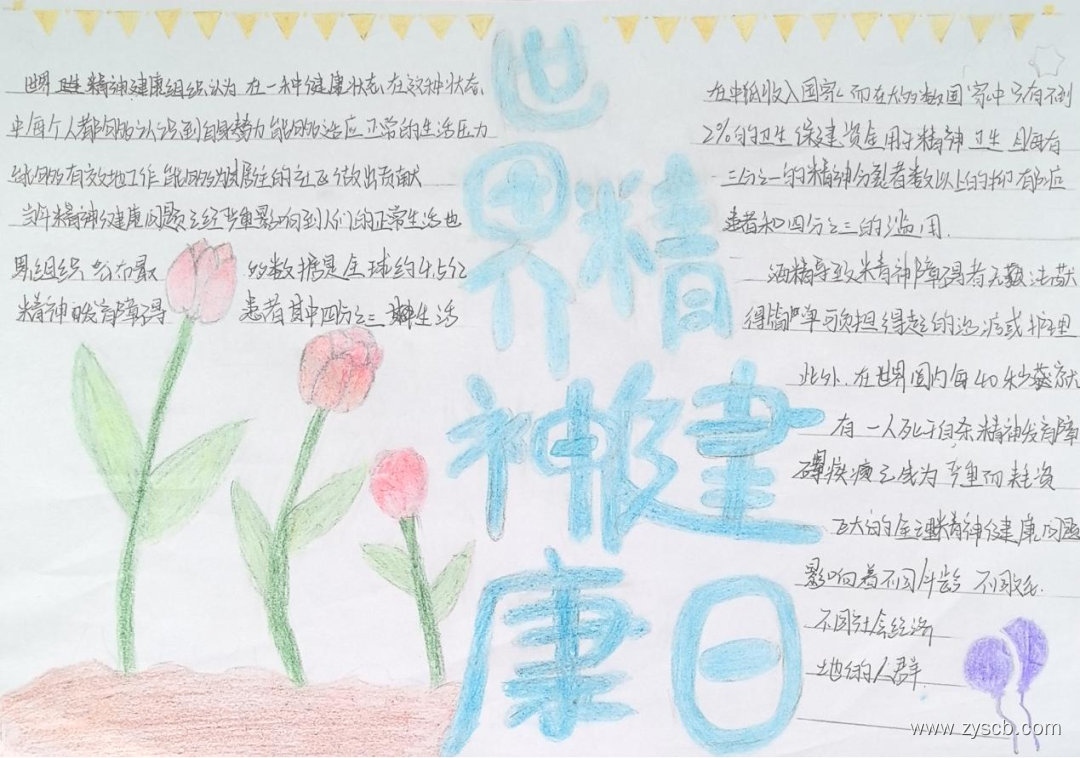 世界精神健康日
世界卫生精神健康组织认为在一种健康状态、在这种状态、
中每个人都能够认识到自身势力能够适应正常的生活压力
能够有效地工作能够为其居住的社区做出贡献
当年精神健康问题已经严重影响到人们的正常生活也
界组织公布最 的数据是全球约4.5亿
精神发育障碍 患者其中四分之三 生活
在中低收入国家之而在大多数国家中只有不到
2%的卫生保健资金用于精神卫生且每有
三分之一的精神分裂者数以上的抑有
患者和四分之三的滥用.
酒精导致精神障碍者无法获
得简单可负担得起的治疗或护理
此外.在世界国内每40秒就
有一人死于自杀精神发育障
碍疾病已成为严重而耗资
巨大的全 精神健康问题
影响着不同年龄 不同
不同社会经济
地位的人群.
www.zyscb.com